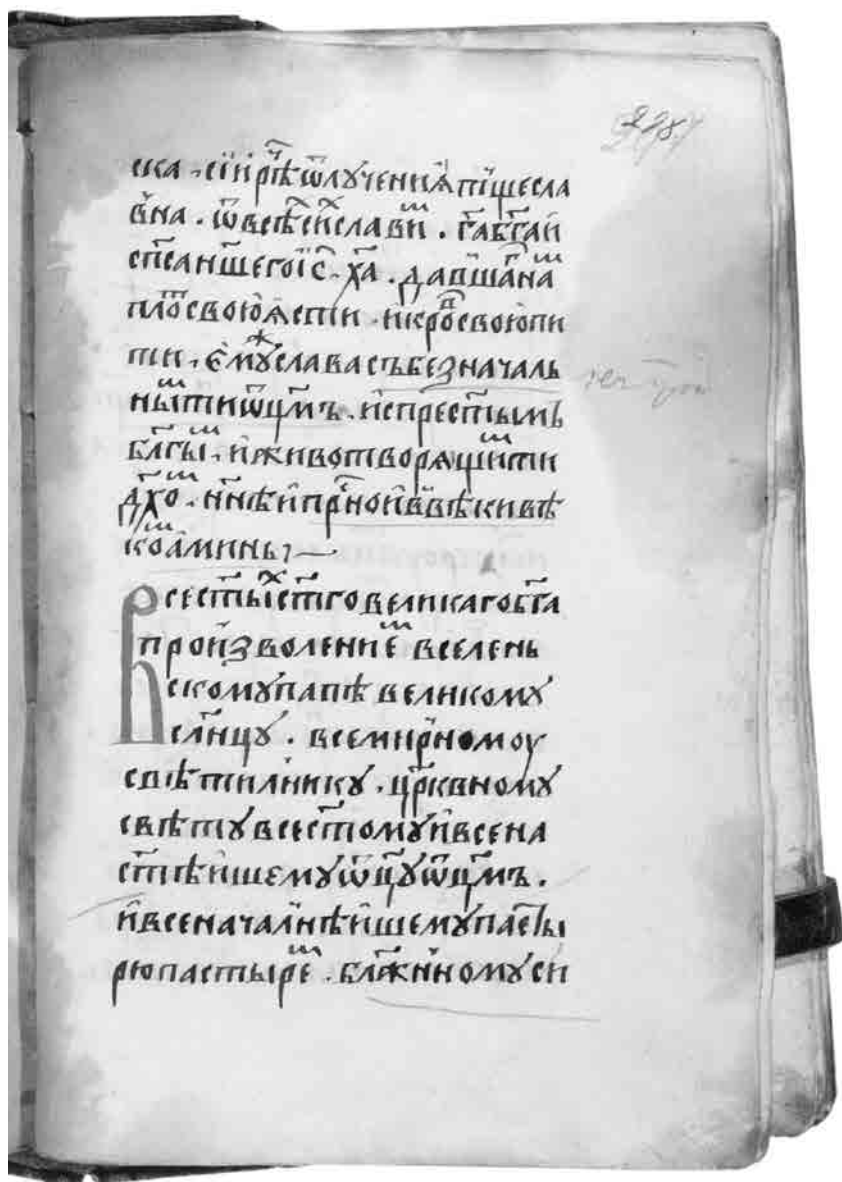 ска · сїи рⷱ҇ѣ ѿлꙋченїѧ пїщеслав
вна · ѿ всѣⷯ сиⷯ славиⷨ · г҃а б҃га и
сп҃са нш҃его і҃с х҃а · давшаⷢ҇ наⷨ
плоⷮ҇ свою ꙗсти · и кроⷡ҇ свою пи
ти · емꙋⷤ слава съ безначаль
ныⷨ ти ѿц҃мъ · и с прест҃ымъ
бл҃гыⷨ · и животворѧщиⷨ ти
дх҃оⷨ · нн҃ѣ и прⷭ҇но и въ вѣки вѣ
коⷨ аминь
Всест҃ыⷯ ст҃го великаго б҃га
произволениеⷨ вселень
скомꙋ папѣ великомꙋ
сл҃нцꙋ · всемирномоу
свѣтилникꙋ · цр҃квномꙋ
свѣтꙋ всест҃омꙋ и всена
ст҃ѣишемꙋ ѿц҃ꙋ ѿц҃мъ ·
и всеначалнѣишемꙋ пастꙑ
рю пастыреⷨ · блаж҃нномꙋ си